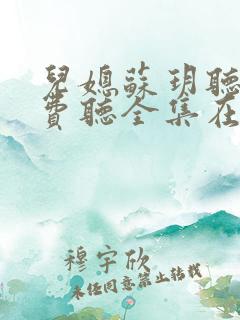 兒媳蘇玥聽
費聽全集在
穆宇欣
未任同意禁止转载